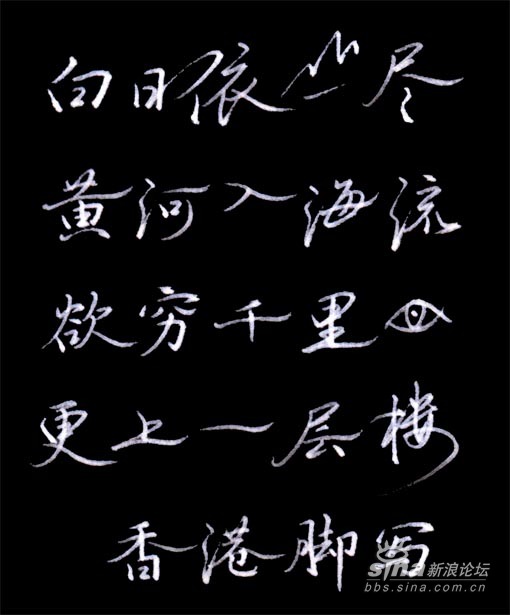 白日依山尽
黄河入海流
欲穷千里
更上一层楼
香港脚
sina新浪论坛
bbs.sina.com.cn